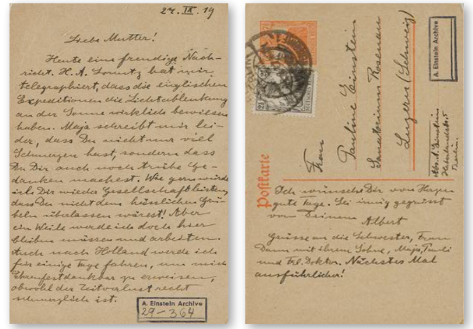 27. IX. 19
Liebe Mutter!
Heute eine freudige Nach-
richt. H. A. Lorentz hat mir
telegraphiert, dass die englischen
Expeditionen die Lichtablenkung
an der Sonne wirklich bewiesen
haben. Maja schreibt mir lei-
der, dass Du nicht nur viel
Schmerzen hast, sondern dass
Du Dir auch noch trübe Ge-
danken machst. Wie gern würde
ich Dir wieder Gesellschaft leisten,
dass Du nicht dem hässlichen Grü-
beln überlassen wärest! Aber
ein Weile werde ich doch hier
bleiben müssen und arbeiten.
Auch nach Holland werde ich
für einige Tage fahren, um mich
Ehrenfest dankbar zu erweisen,
obwohl der Zeitverlust recht
unangenehm ist.
A. Einstein Archive
29-364
Postkarte
Frau
Pauline Einstein
Sanatorium Rosenau
Luzern (Schweiz)
A. Einstein Archive
Albert Einstein
Haberlandstr. 5
Berlin.
Ich wünsche Dir von Herzen
gute Tage. Sei innig gegrüsst
von Deinem
Albert
Grüsse an die Schwester, Frau
mit ihrem Sohn, Maja, Pauli
und Frl. Doktor. Nächstes Mal
ausführlicher!